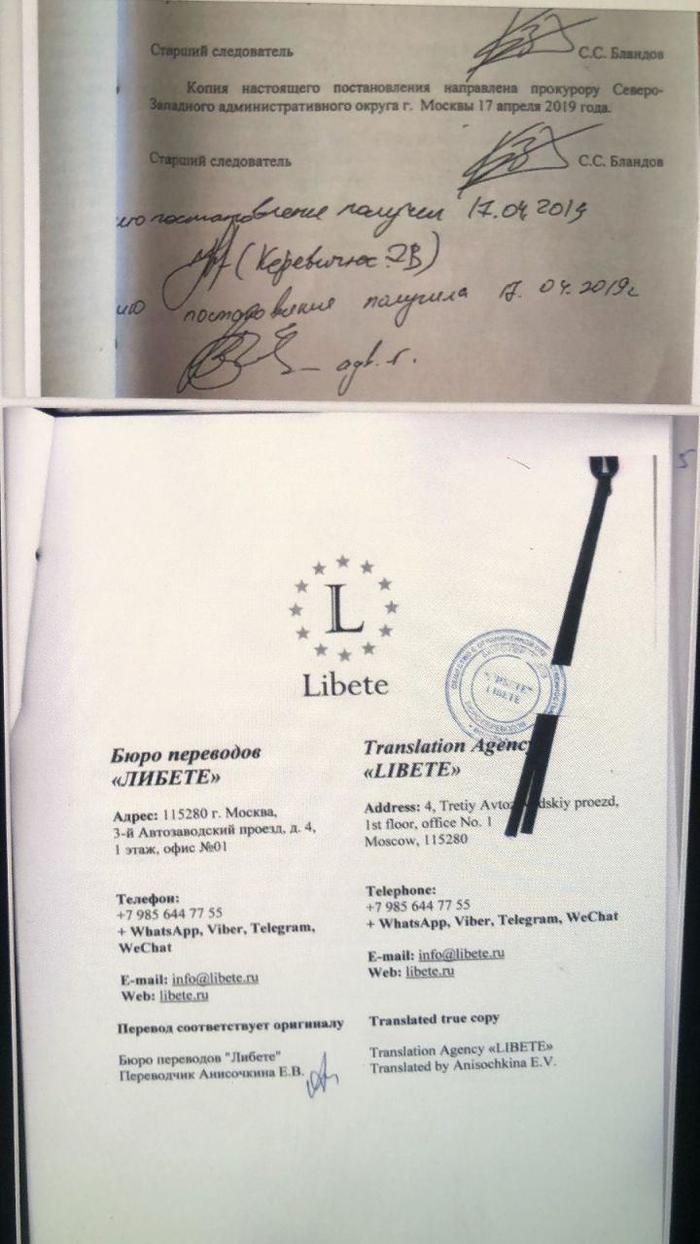 Старший следователь С.С. Бландов
Копия настоящего постановления направлена прокурору Северо-
Западного административного округа г. Москвы 17 апреля 2019 года.
Старший следователь С.С. Бландов
получил 17.04 2019
получила 17. 04. 2019г
адв.
5
L
Libete
LIBETE
Бюро переводов
«ЛИБЕТЕ»
Адрес: 115280 г. Москва,
3-й Автозаводский проезд, д. 4,
1 этаж, офис №01
Телефон:
+7 985 644 77 55
+ WhatsApp, Viber, Telegram,
WeChat
E-mail: info@libete.ru
Web: libete.ru
Перевод соответствует оригиналу
Бюро переводов "Либете"
Переводчик Анисочкина Е.В.
Translation Agenc
«LIBETE»
Address: 4, Tretiy Avtoz dskiy proezd,
1st floor, office No. 1
Moscow, 115280
Telephone:
+7 985 644 77 55
+ WhatsApp, Viber, Telegram, WeChat
E-mail: info@libete.ru
Web: libete.ru
Translated true copy
Translation Agency «LIBETE»
Translated by Anisochkina E.V.